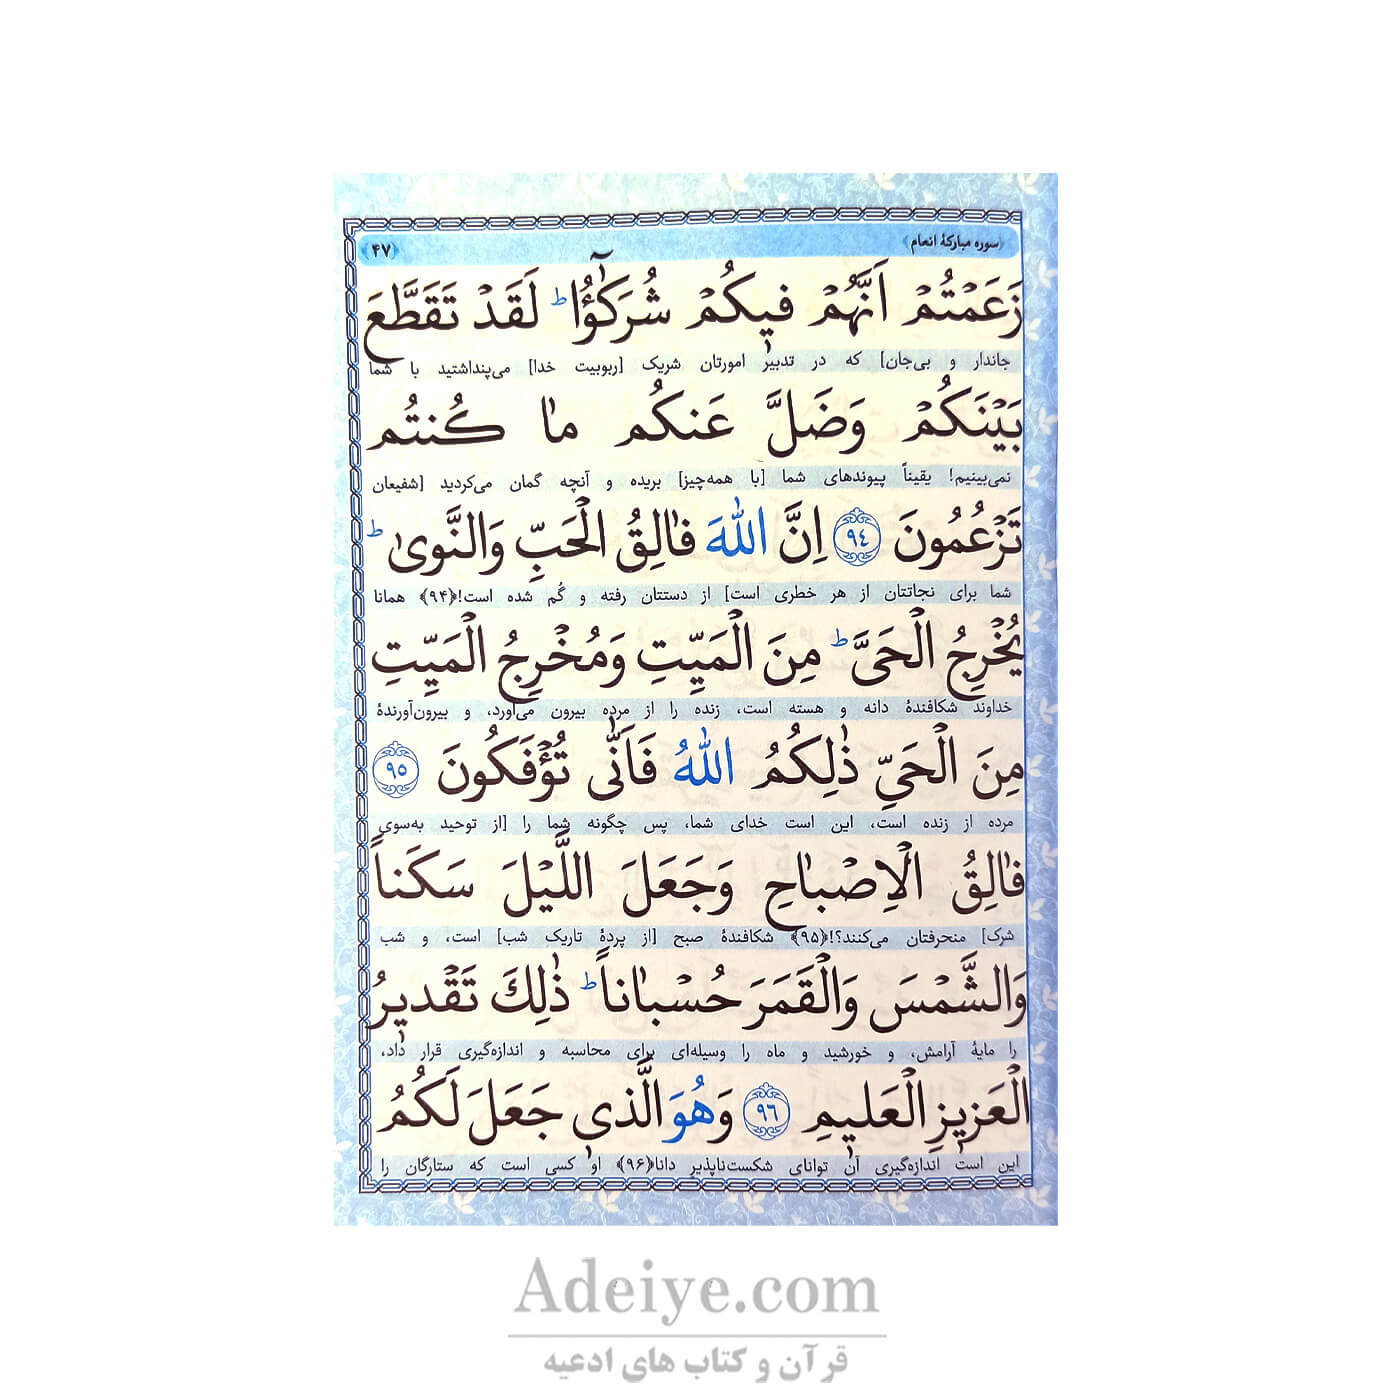 ﴿سوره مبارکهٔ انعام﴾ ﴿۴۷﴾
زَعَمْتُمْ اَنَّهُمْ فيكُمْ شُرَكٰٓؤُ۬ا ط لَقَدْ تَقَطَّعَ
جاندار و بی‌جان] که در تدبیر امورتان شریک [ربوبیت خدا] می‌پنداشتید با شما
بَيْنَكُمْ وَضَلَّ عَنكُم مٰا كُنتُم
نمی‌بینیم! یقیناً پیوندهای شما [با همه‌چیز] بریده و آنچه گمان می‌کردید [شفیعان
تَزْعُمُونَ ﴿٩٤﴾ اِنَّ اللّٰهَ فٰالِقُ الْحَبِّ وَالنَّوىٰ ط
شما برای نجاتتان از هر خطری است] از دستتان رفته و گُم شده است!﴿۹۴﴾ همانا
يُخْرِجُ الْحَىَّ ط مِنَ الْمَيِّتِ وَمُخْرِجُ الْمَيِّتِ
خداوند شکافندهٔ دانه و هسته است، زنده را از مرده بیرون می‌آورد، و بیرون‌آورندهٔ
مِنَ الْحَىِّ ذٰلِكُمُ اللّٰهُ فَاَنّٰى تُؤْفَكُونَ ﴿٩٥﴾
مرده از زنده است، این است خدای شما، پس چگونه شما را [از توحید به‌سوی
فٰالِقُ الْاِصْبٰاحِ وَجَعَلَ اللَّيْلَ سَكَناً
شرک] منحرفتان می‌کنند؟!﴿۹۵﴾ شکافندهٔ صبح [از پردهٔ تاریک شب] است، و شب
وَالشَّمْسَ وَالْقَمَرَ حُسْبٰاناً ط ذٰلِكَ تَقْديرُ
را مایهٔ آرامش، و خورشید و ماه را وسیله‌ای برای محاسبه و اندازه‌گیری قرار داد،
الْعَزيزِ الْعَليمِ ﴿٩٦﴾ وَهُوَ الَّذي جَعَلَ لَكُمُ
این است اندازه‌گیری آن توانای شکست‌ناپذیر دانا﴿۹۶﴾ او کسی است که ستارگان را
Adeiye.com
قرآن و کتاب های ادعیه